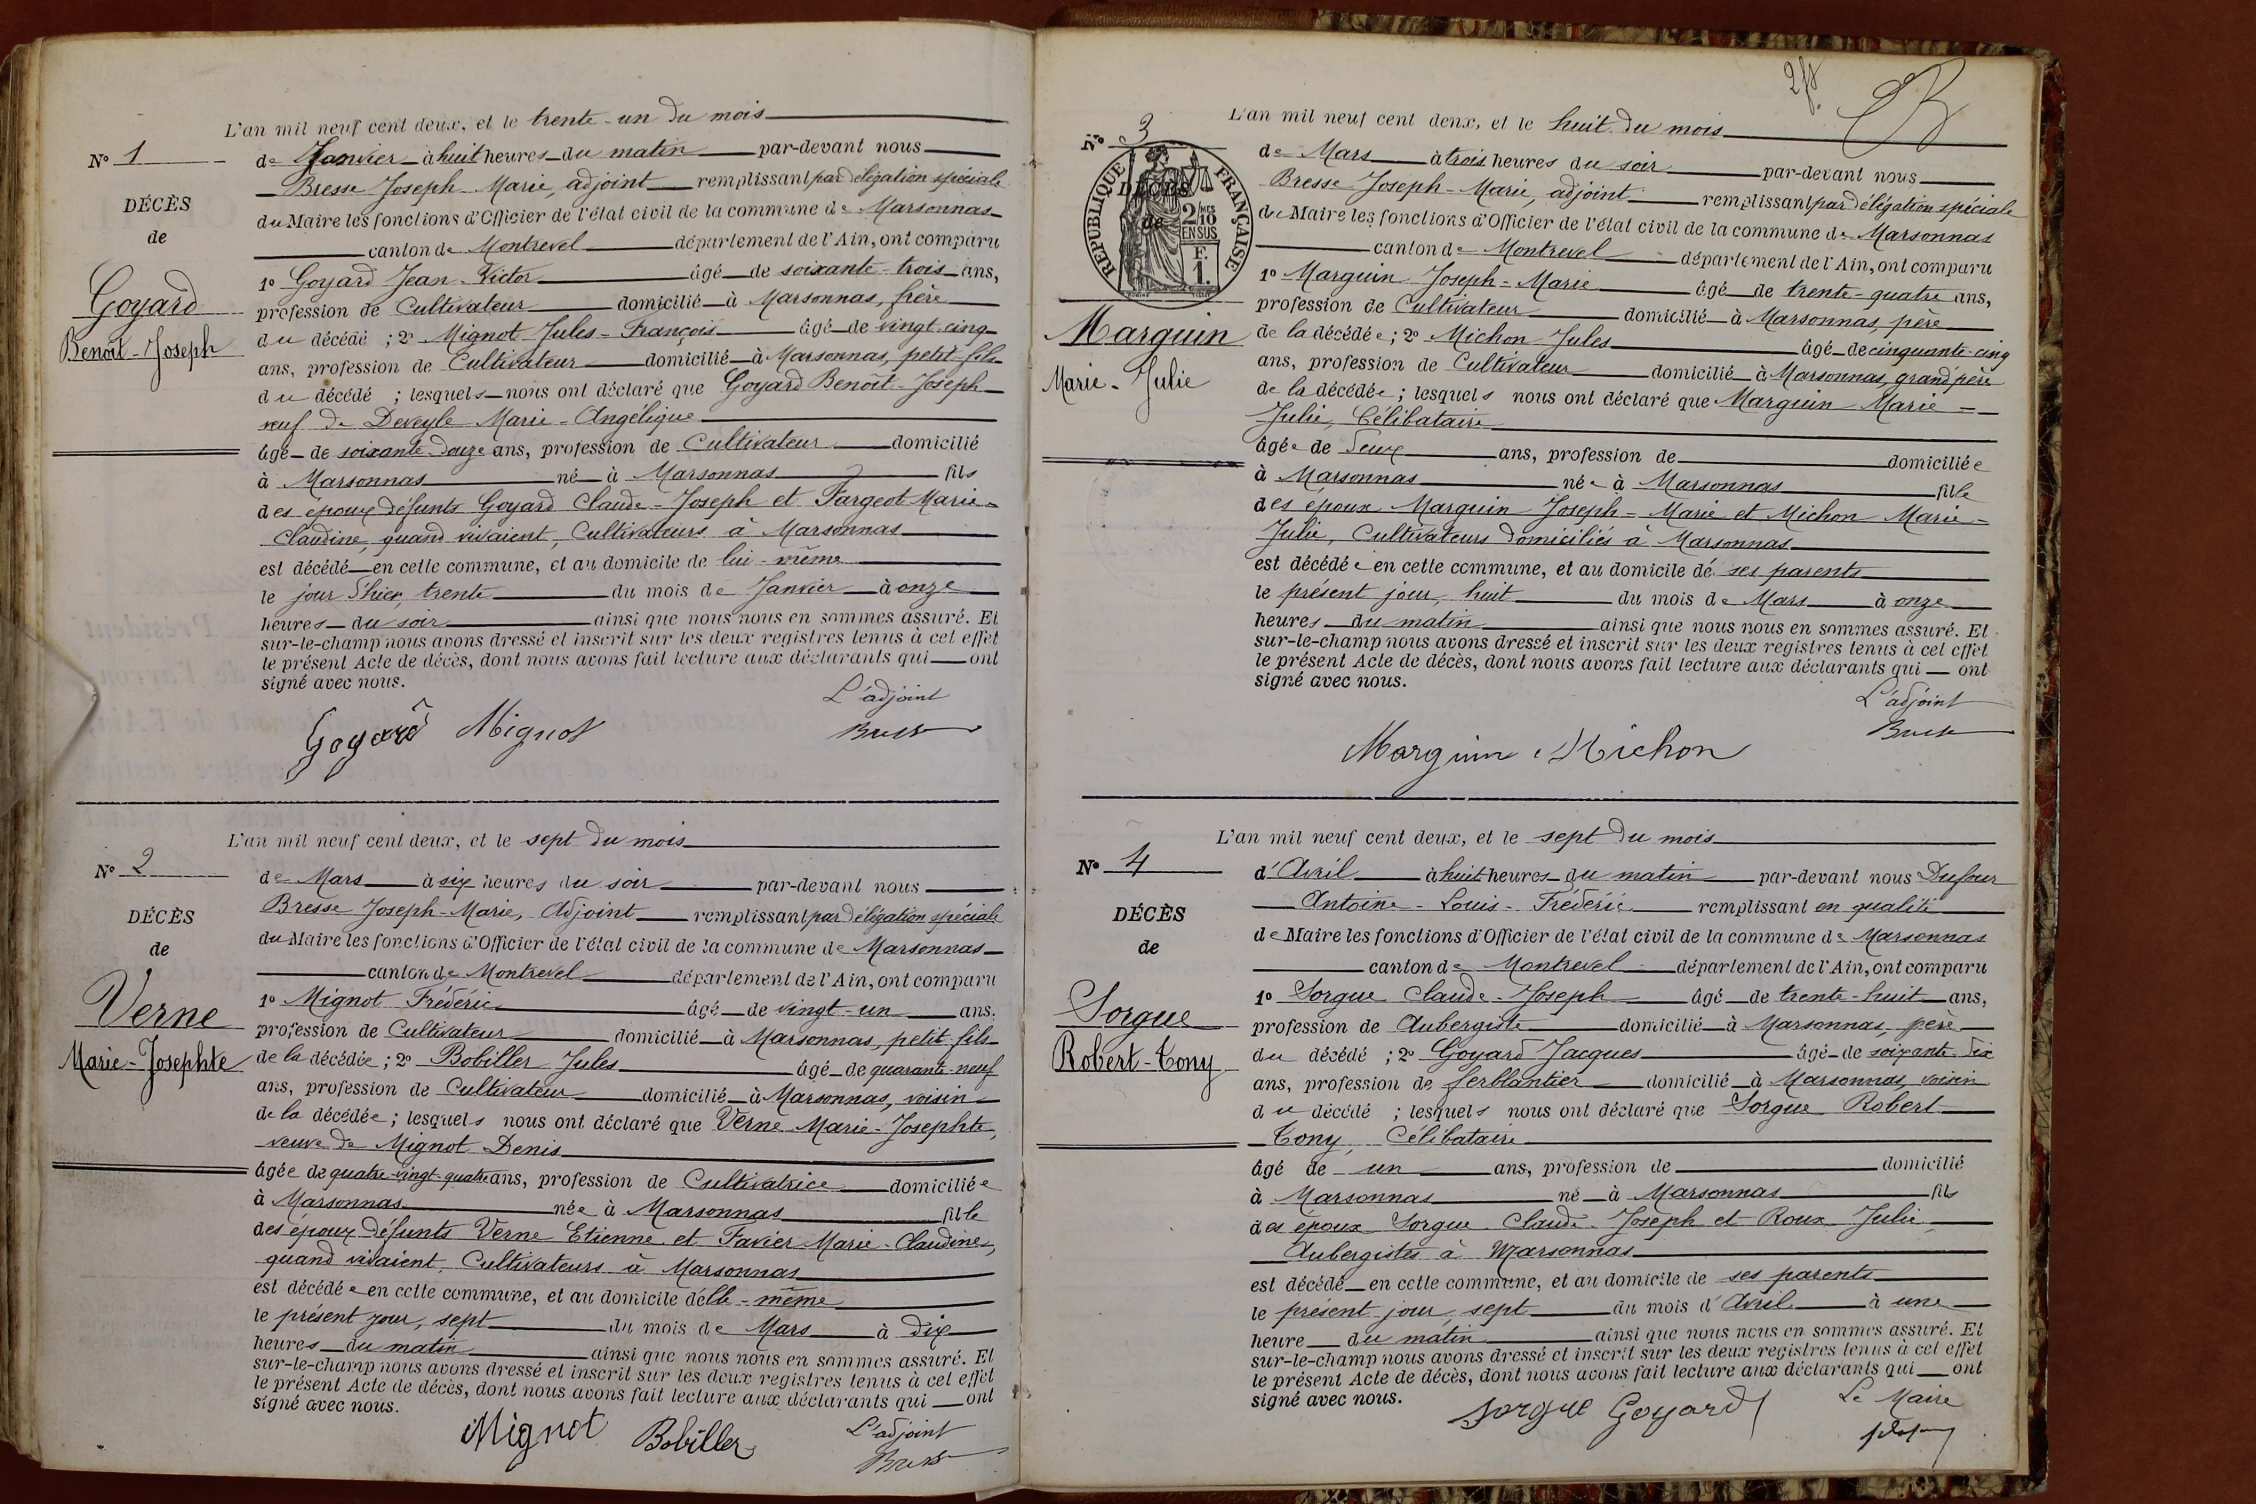 L'an mil neuf cent deux, et le trente-un du mois
N° 1
de Janvier à huit heures du matin par-devant nous
Bresse Joseph-Marie, adjoint remplissant par délégation spéciale
DÉCÈS
du Maire les fonctions d'Officier de l'état civil de la commune de Marsonnas
de
canton de Montrevel département de l'Ain, ont comparu
1° Goyard Jean-Victor âgé de soixante-trois ans,
Goyard
profession de Cultivateur domicilié à Marsonnas, frère
Benoît-Joseph
du décédé ; 2° Mignot Jules-François âgé de vingt-cinq
ans, profession de Cultivateur domicilié à Marsonnas, petit-fils
du décédé ; lesquels nous ont déclaré que Goyard Benoît-Joseph
veuf de Deveyle Marie-Angélique
âgé de soixante-douze ans, profession de Cultivateur domicilié
à Marsonnas né à Marsonnas fils
des époux défunts Goyard Claude-Joseph et Fargeot Marie-
Claudine, quand vivaient, Cultivateurs à Marsonnas
est décédé en cette commune, et au domicile de lui-même
le jour d'hier, trente du mois de Janvier à onze
heures du soir ainsi que nous nous en sommes assuré. Et
sur-le-champ nous avons dressé et inscrit sur les deux registres tenus à cet effet
le présent Acte de décès, dont nous avons fait lecture aux déclarants qui ont
signé avec nous.
L'adjoint
Goyard Mignot Bresse
L'an mil neuf cent deux, et le sept du mois
N° 2
de Mars à six heures du soir par-devant nous
Bresse Joseph-Marie, Adjoint remplissant par délégation spéciale
DÉCÈS
du Maire les fonctions d'Officier de l'état civil de la commune de Marsonnas
de
canton de Montrevel département de l'Ain, ont comparu
1° Mignot Frédéric âgé de vingt-un ans.
Verne
profession de Cultivateur domicilié à Marsonnas, petit-fils
Marie-Josephte
de la décédée ; 2° Bobiller Jules âgé de quarante-neuf
ans, profession de Cultivateur domicilié à Marsonnas, voisin
de la décédée ; lesquels nous ont déclaré que Verne Marie-Josephte,
veuve de Mignot Denis
âgée de quatre-vingt-quatre ans, profession de Cultivatrice domiciliée
à Marsonnas née à Marsonnas fille
des époux défunts Verne Etienne et Favier Marie-Claudine,
quand vivaient, Cultivateurs à Marsonnas
est décédée en cette commune, et au domicile d'elle-même
le présent jour, sept du mois de Mars à dix
heures du matin ainsi que nous nous en sommes assuré. Et
sur-le-champ nous avons dressé et inscrit sur les deux registres tenus à cet effet
le présent Acte de décès, dont nous avons fait lecture aux déclarants qui ont
signé avec nous.
L'adjoint
Mignot Bobiller Bresse
L'an mil neuf cent deux, et le huit du mois
N° 3
de Mars à trois heures du soir par-devant nous
Bresse Joseph-Marie, adjoint remplissant par délégation spéciale
RÉPUBLIQUE FRANÇAISE
DÉCÈS
2/10 MES EN SUS
du Maire les fonctions d'Officier de l'état civil de la commune de Marsonnas
de
F. 1.
canton de Montrevel département de l'Ain, ont comparu
1° Marguin Joseph-Marie âgé de trente-quatre ans,
profession de Cultivateur domicilié à Marsonnas, père
Marguin
de la décédée ; 2° Michon Jules âgé de cinquante-cinq
Marie-Julie
ans, profession de Cultivateur domicilié à Marsonnas, grand'père
de la décédée ; lesquels nous ont déclaré que Marguin Marie-
Julie, Célibataire
âgée de deux ans, profession de domiciliée
à Marsonnas née à Marsonnas fille
des époux Marguin Joseph-Marie et Michon Marie-
Julie, Cultivateurs domiciliés à Marsonnas
est décédée en cette commune, et au domicile de ses parents
le présent jour, huit du mois de Mars à onze
heures du matin ainsi que nous nous en sommes assuré. Et
sur-le-champ nous avons dressé et inscrit sur les deux registres tenus à cet effet
le présent Acte de décès, dont nous avons fait lecture aux déclarants qui ont
signé avec nous.
L'adjoint
Marguin Michon Bresse
L'an mil neuf cent deux, et le sept du mois
N° 4
d'Avril à huit heures du matin par-devant nous Dufour
Antoine-Louis-Frédéric remplissant en qualité
DÉCÈS
de Maire les fonctions d'Officier de l'état civil de la commune de Marsonnas
de
canton de Montrevel département de l'Ain, ont comparu
1° Sorgue Claude-Joseph âgé de trente-huit ans,
Sorgue
profession de Aubergiste domicilié à Marsonnas, père
Robert-Tony
du décédé ; 2° Goyard Jacques âgé de soixante-dix
ans, profession de ferblantier domicilié à Marsonnas, voisin
du décédé ; lesquels nous ont déclaré que Sorgue Robert
Tony, Célibataire
âgé de un ans, profession de domicilié
à Marsonnas né à Marsonnas fils
des époux Sorgue Claude-Joseph et Roux Julie,
Aubergistes à Marsonnas
est décédé en cette commune, et au domicile de ses parents
le présent jour, sept du mois d'Avril à une
heure du matin ainsi que nous nous en sommes assuré. Et
sur-le-champ nous avons dressé et inscrit sur les deux registres tenus à cet effet
le présent Acte de décès, dont nous avons fait lecture aux déclarants qui ont
signé avec nous.
Le Maire
Sorgue Goyard